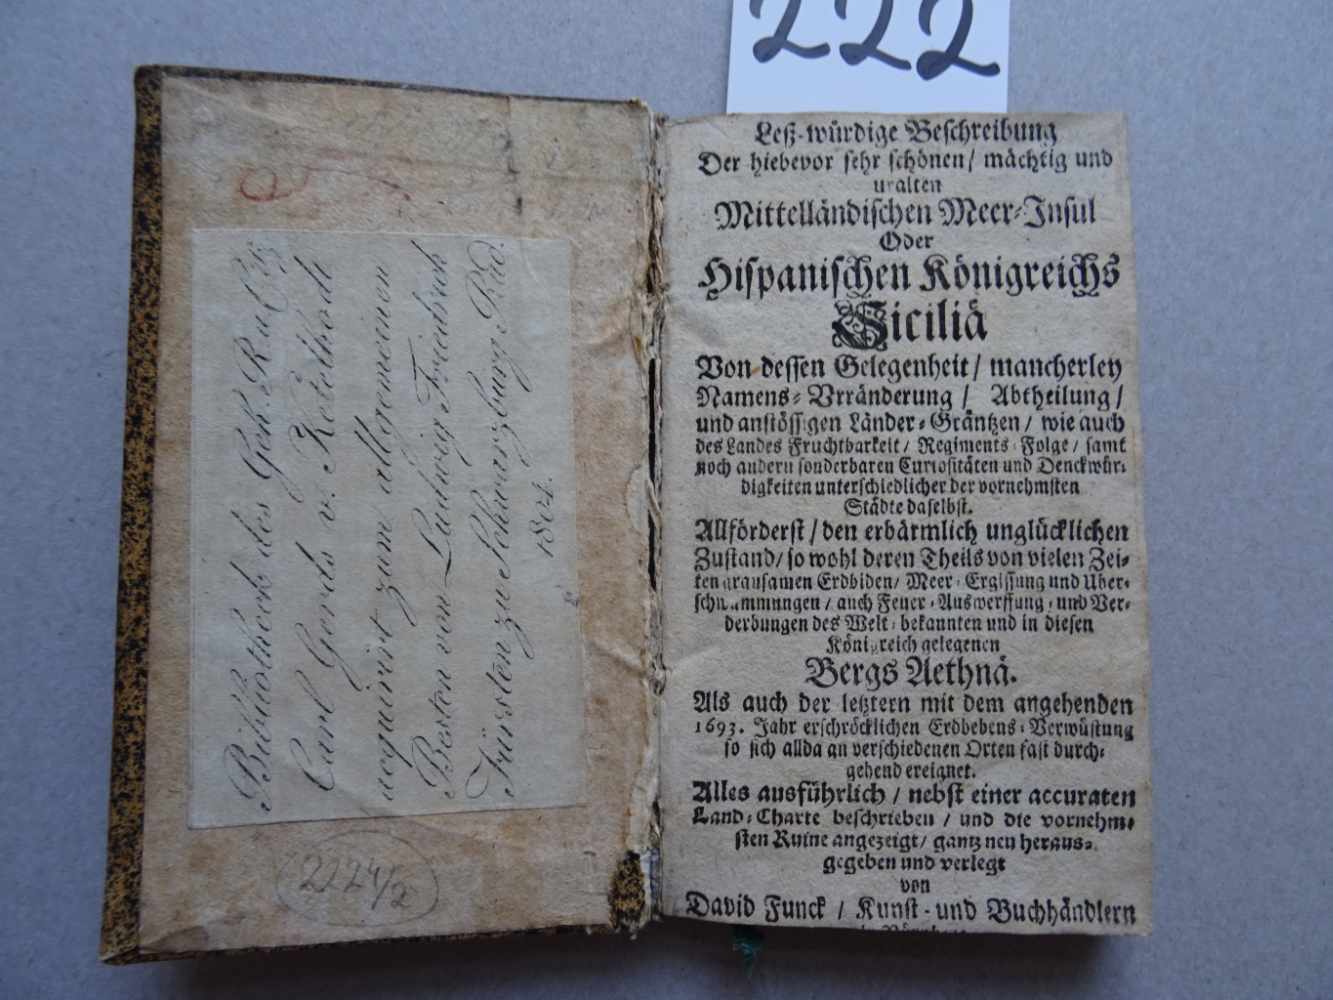 222
Bibliotheck des Geh. Rath
Carl Gerds v. Ketelhodt
acquirirt zum allgemeinen
Besten vom Ludwig Friedrich
Fürsten zu Schwarzburg Rud.
1804.
2224/2
Leß-würdige Beschreibung
Der hiebevor sehr schönen/ mächtig und
uralten
Mittelländischen Meer-Insul
Oder
Hispanischen Königreichs
Siciliä
Von dessen Gelegenheit/ mancherley
Namens-Vrränderung/ Abtheilung/
und anstössigen Länder-Gräntzen/ wie auch
des Landes Fruchtbarkeit/ Regiments-Folge/ samt
noch andern sonderbaren Curiositäten und Denckwür-
digkeiten unterschiedlicher der vornehmsten
Städte daselbst.
Allförderst/ den erbärmlich unglücklichen
Zustand/ so wohl deren Theils von vielen Zei-
ten grausamen Erdbiden/ Meer-Ergissung und Uber-
schwammungen/ auch Feuer-Auswerffung, und Ver-
derbungen des Welt-bekannten und in diesen
Königreich gelegenen
Bergs Aethnä.
Als auch der letztern mit dem angehenden
1693. Jahr erschröcklichen Erdbebens-Verwüstung
so sich allda an verschiedenen Orten fast durch-
gehend ereignet.
Alles ausführlich/ nebst einer accuraten
Land-Charte beschrieben/ und die vornehm-
sten Ruine angezeigt/ gantz neu heraus-
gegeben und verlegt
von
David Funck/ Kunst- und Buchhändlern